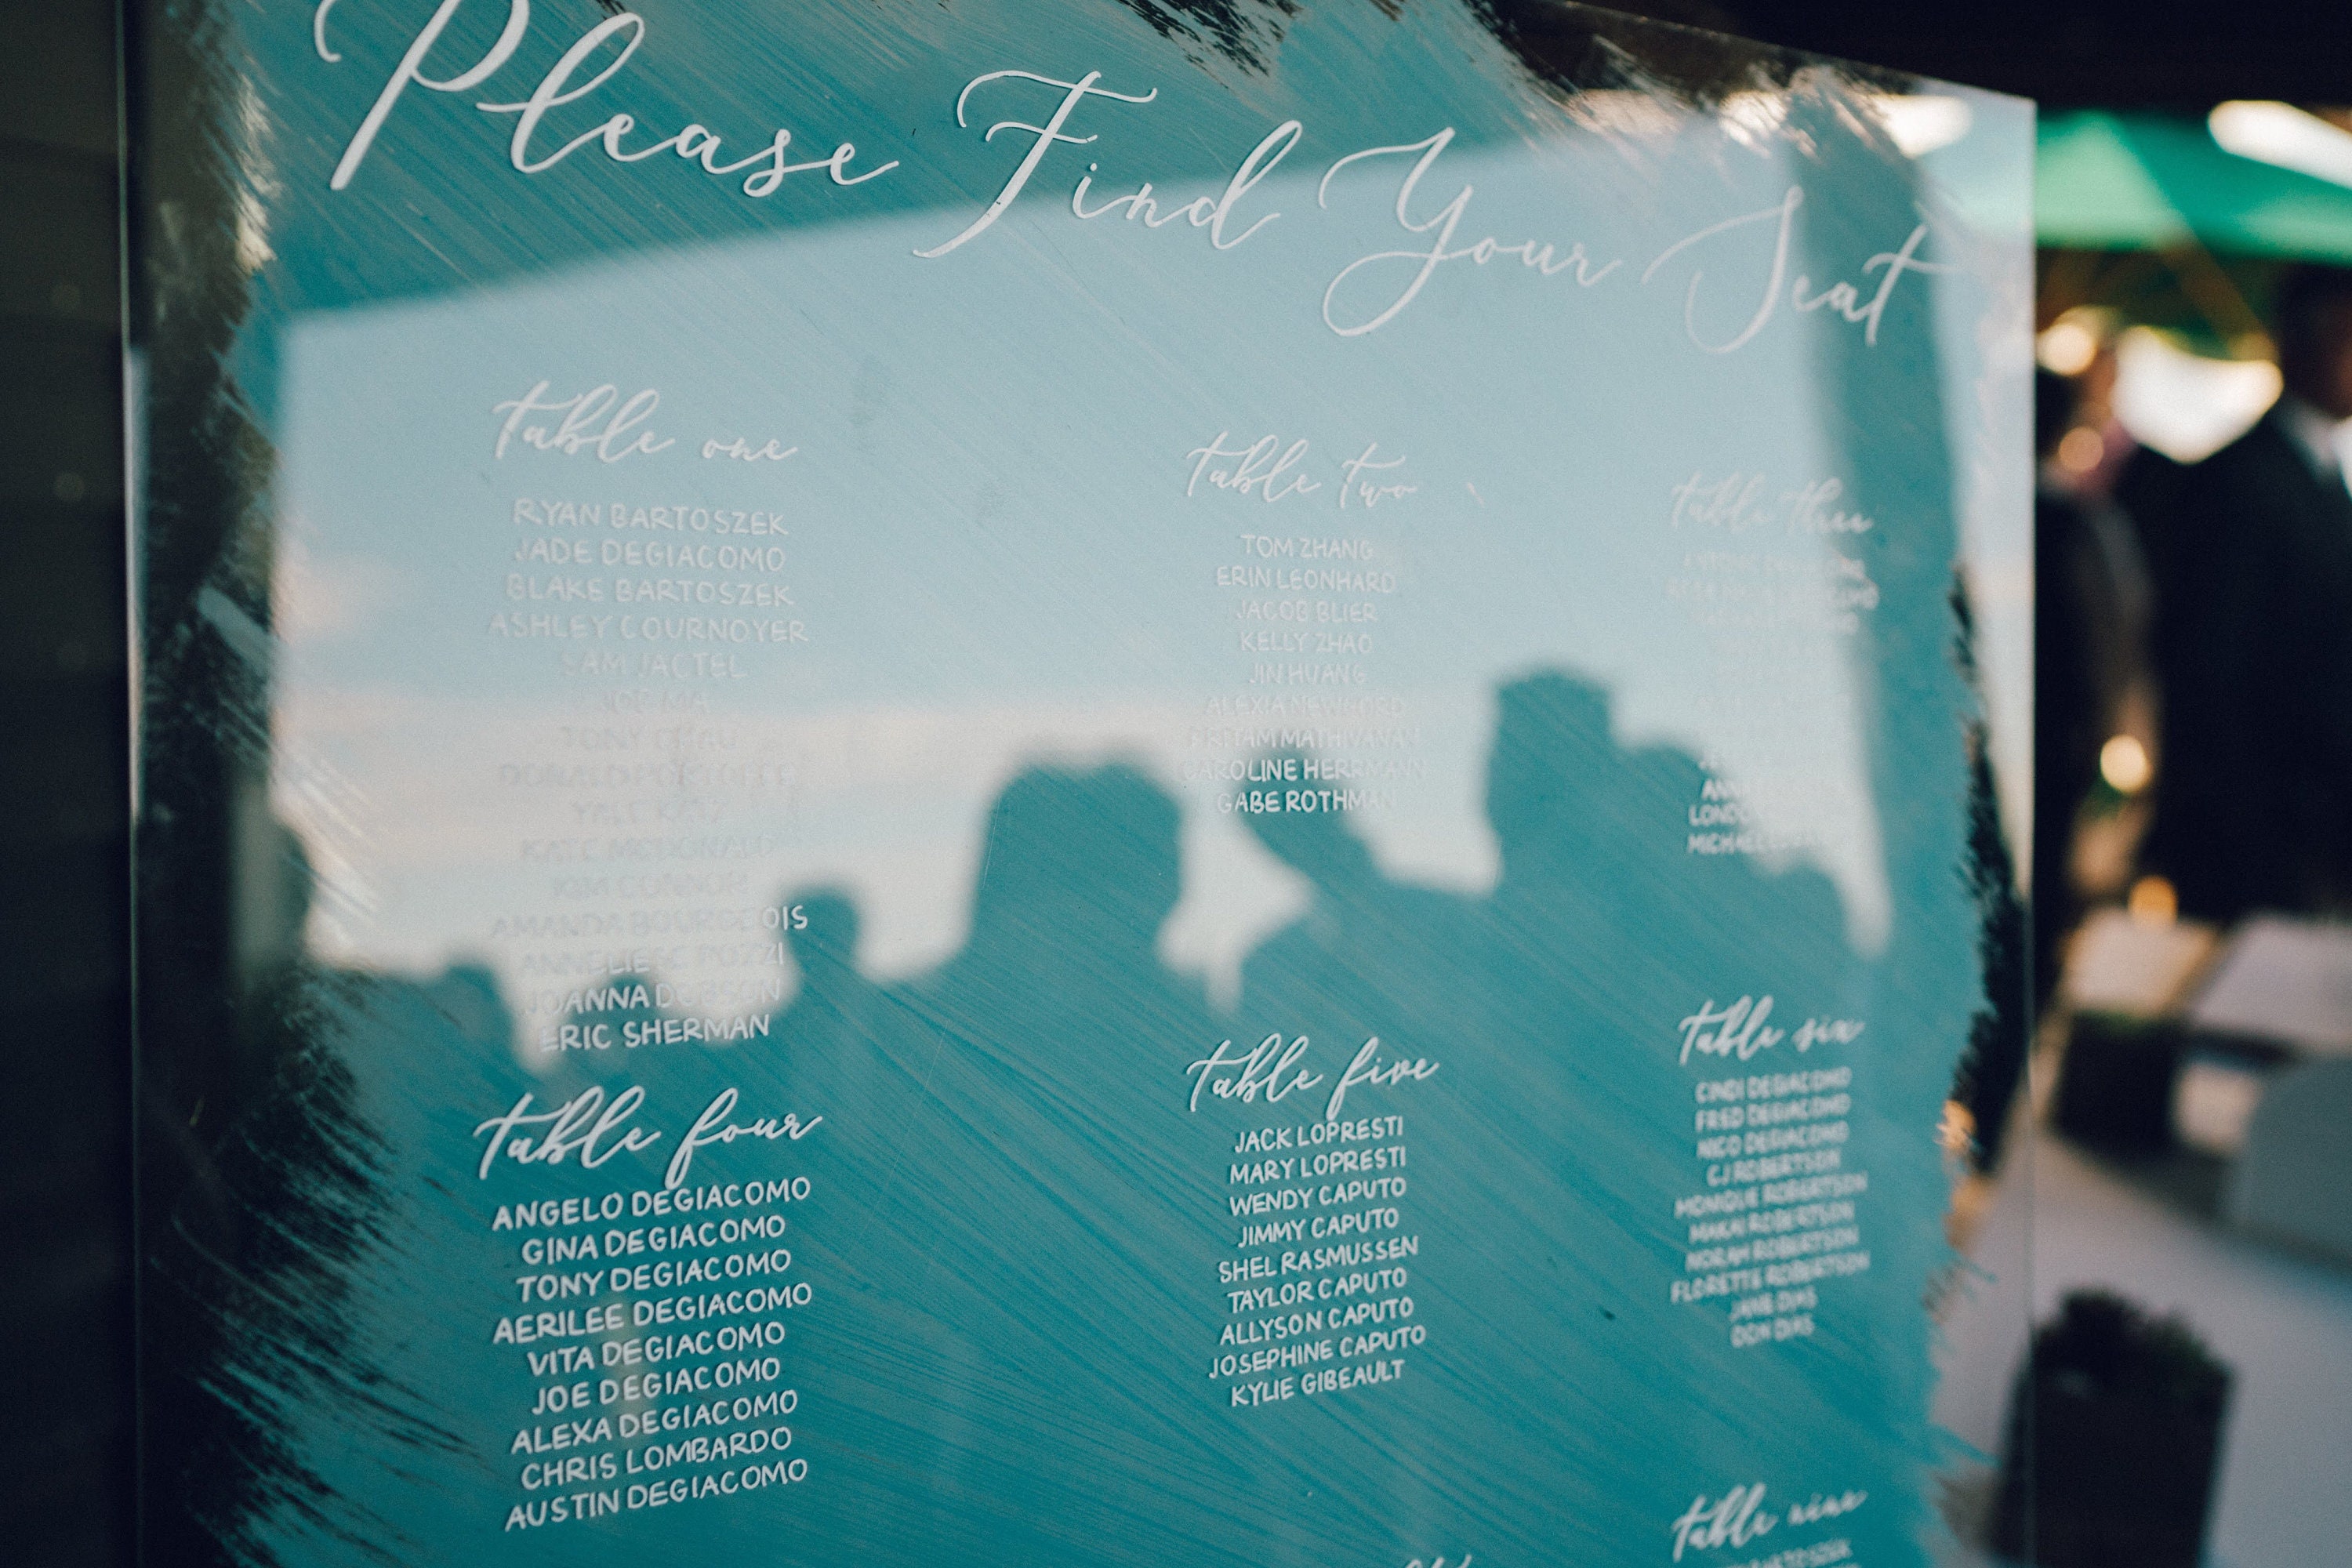 Please Find Your Seat
table one
RYAN BARTOSZEK
JADE DEGIACOMO
BLAKE BARTOSZEK
ASHLEY COURNOYER
SAM JACTEL
JOE MA
TONY CHAU
DONALD
YALE KATZ
KATE MCDONALD
KIM CONNOR
AMANDA BOURGEOIS
ANNELIESE POZZI
JOANNA DOBSON
ERIC SHERMAN
table two
TOM ZHANG
ERIN LEONHARD
JACOB BLIER
KELLY ZHAO
JIN HUANG
ALEXIA NEWSFORD
PRITAM MATHIVANAN
CAROLINE HERRMANN
GABE ROTHMAN
table three
table four
ANGELO DEGIACOMO
GINA DEGIACOMO
TONY DEGIACOMO
AERILEE DEGIACOMO
VITA DEGIACOMO
JOE DEGIACOMO
ALEXA DEGIACOMO
CHRIS LOMBARDO
AUSTIN DEGIACOMO
table five
JACK LOPRESTI
MARY LOPRESTI
WENDY CAPUTO
JIMMY CAPUTO
SHEL RASMUSSEN
TAYLOR CAPUTO
ALLYSON CAPUTO
JOSEPHINE CAPUTO
KYLIE GIBEAULT
table six
CINDI DEGIACOMO
FRED DEGIACOMO
NICO DEGIACOMO
CJ ROBERTSON
MONIQUE ROBERTSON
MAKAI ROBERTSON
NORAH ROBERTSON
FLORETTE ROBERTSON
JANE DIAS
DON DIAS
table nine